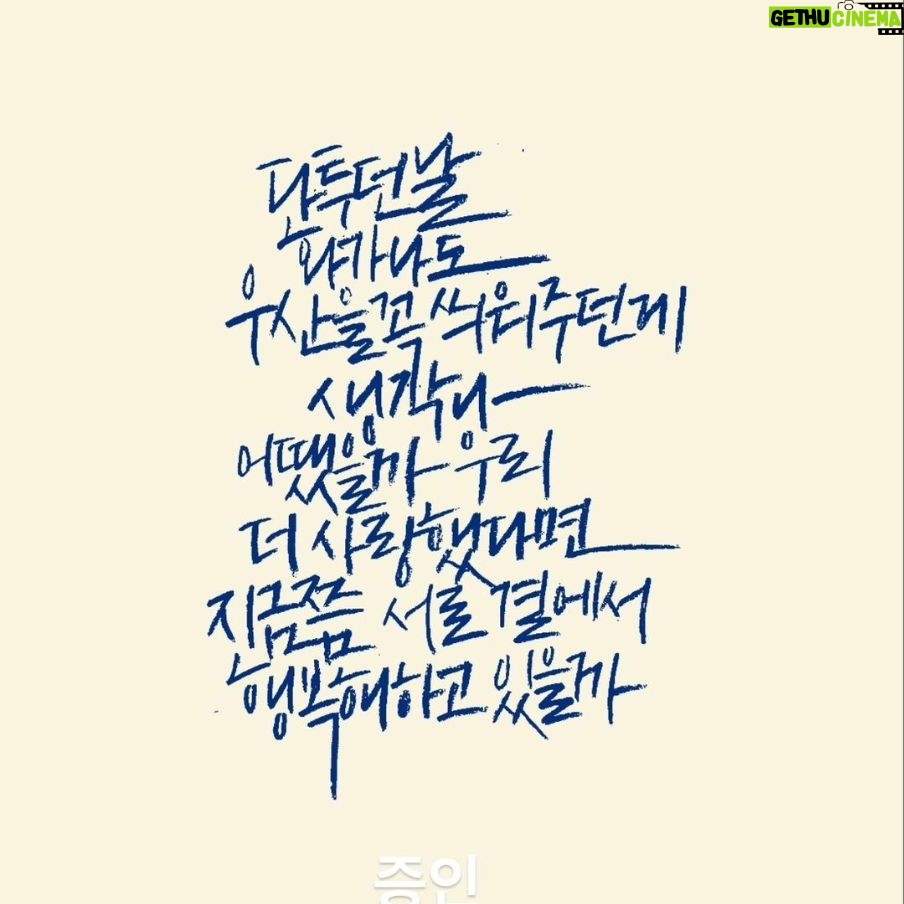 GETHUCINEMA
단투던날
화가나도
우산을꼭 씌워주던게
생각나
어땠을까 우리
더 사랑했다면
지금쯤 서로 곁에서
행복해하고 있을까
증인